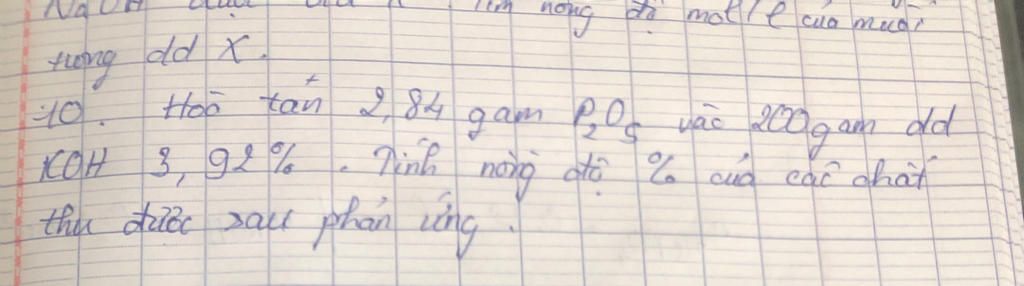 NaOH nồng độ mol/l của muối
trong dd X.
10. Hoà tan 2,84 gam P₂O₅ vào 200gam dd
KOH 3,92%. Tính nồng độ % của các chất
thu được sau phản ứng.